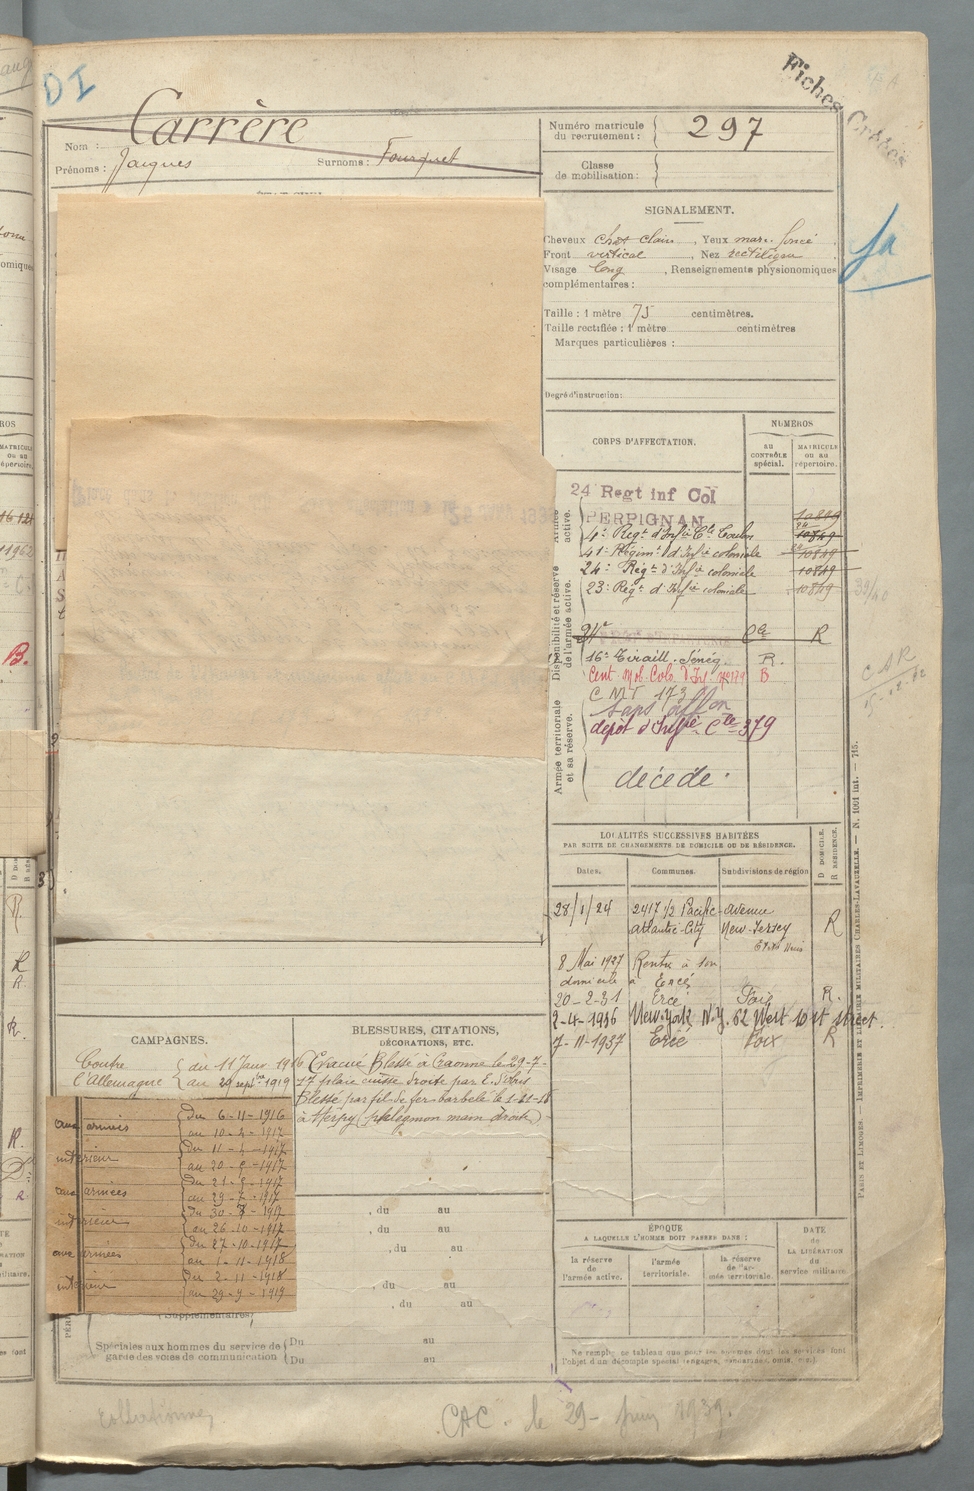 DI
Fiches Créées
Nom : Carrère
Prénoms : Jacques Surnoms : Fourquet
Numéro matricule
du recrutement : 297
Classe
de mobilisation :
SIGNALEMENT.
Cheveux chat clair, Yeux mar. foncé
Front vertical, Nez rectiligne
Visage long, Renseignements physionomiques
complémentaires :
Taille : 1 mètre 75 centimètres.
Taille rectifiée : 1 mètre centimètres
Marques particulières :
Degré d'instruction :
CORPS D'AFFECTATION.
NUMÉROS
AU CONTRÔLE spécial.
MATRICULE OU AU répertoire.
Armée active.
Disponibilité et réserve de l'armée active.
Armée territoriale et sa réserve.
24 Regt inf Col
PERPIGNAN 10849
4e Regt d'Infie Cle Toulon 10849
41e Régimt d'Infie coloniale 10849
24e Regt d'Infie coloniale 10849
23e Regt d'Infie coloniale 10849
24e Cle R
16e Tiraill. Sénég. R.
Cent. Mob. Colo. d'Inf. No 179 B
C M I 173
Sans affon
dépôt d'Infie Cle 379
décédé.
CAR
LOCALITÉS SUCCESSIVES HABITÉES
PAR SUITE DE CHANGEMENTS DE DOMICILE OU DE RÉSIDENCE.
Dates. Communes. Subdivisions de région
D DOMICILE. R RÉSIDENCE.
28/1/24 2417 1/2 Pacific-avenue
Atlantic-City New-Jersey R
Etats Unis
8 Mai 1927 Rentré à son
domicile à Ercé
20-2-31 Ercé Foix R.
2-4-1936 New-York N.Y. 62 West 10 st street.
7-11-1937 Ercé Foix R
CAMPAGNES.
Contre { du 11 Janv. 1916
l'Allemagne { au 29 septbre 1919
aux armées { du 6-11-1916
au 10-4-1917
intérieur { du 11-4-1917
au 20-5-1917
aux armées { du 21-5-1917
au 29-7-1917
intérieur { du 30-7-1917
au 26-10-1917
aux armées { du 27-10-1917
au 1-11-1918
intérieur { du 2-11-1918
au 29-9-1919
BLESSURES, CITATIONS,
DÉCORATIONS, ETC.
Evacué Blessé à Craonne le 29-7-
17 plaie cuisse droite par E. d'obus
Blessé par fil de fer barbelé le 1-11-18
à Herpy (phlegmon main droite)
, du au
, du au
, du au
, du au
, du au
(Supplémentaires)
Spéciales aux hommes du service de { Du au
garde des voies de communication { Du au
ÉPOQUE
A LAQUELLE L'HOMME DOIT PASSER DANS :
la réserve de l'armée active.
l'armée territoriale.
la réserve de l'armée territoriale.
DATE
de
LA LIBÉRATION
du
service militaire.
Ne remplir ce tableau que pour les hommes dont les services font
l'objet d'un décompte spécial (engagés, condamnés, omis, etc.)
PARIS ET LIMOGES. — IMPRIMERIE ET LIBRAIRIE MILITAIRES CHARLES-LAVAUZELLE. — N. 1001 int. — 715.
Collationné
CAC. le 29- Juin 1939.